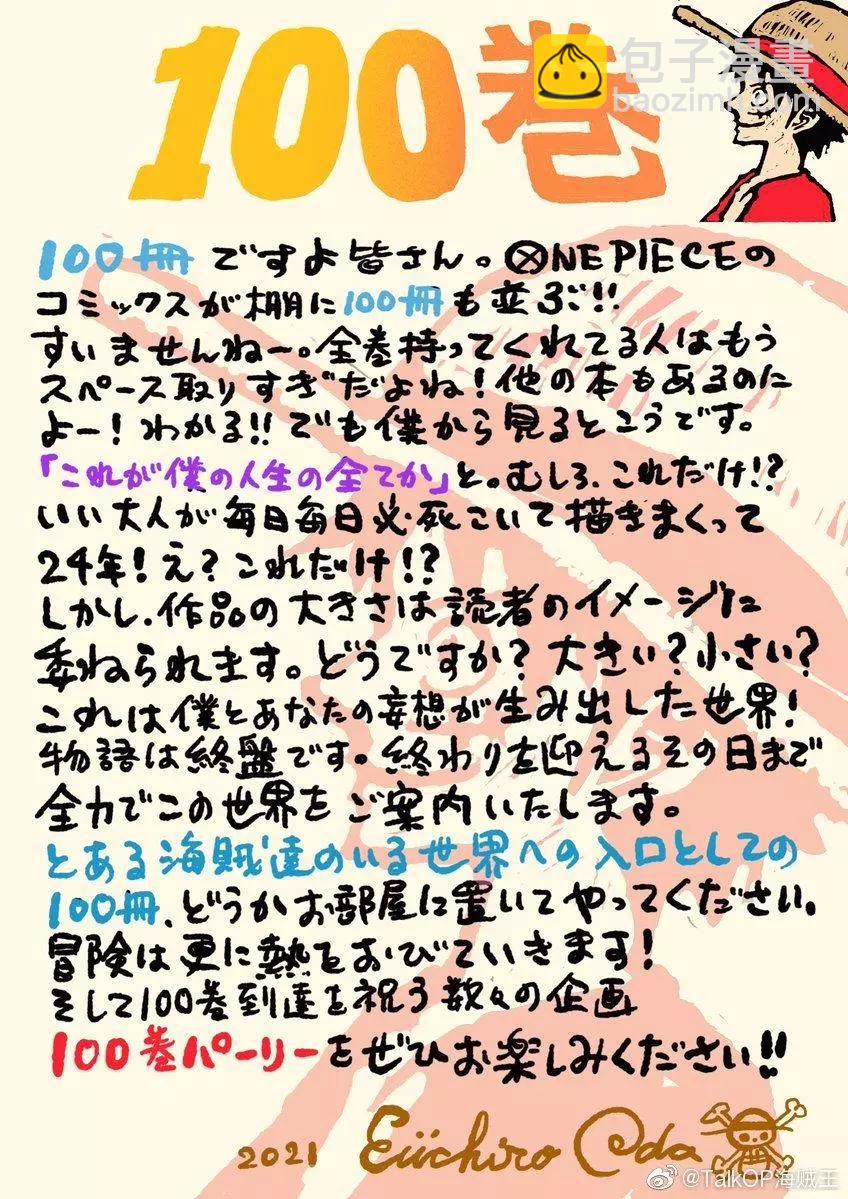 100巻
包子漫畫
baozimh.com
100冊ですよ皆さん。ONE PIECEの
コミックスが棚に100冊も並ぶ!!
すいませんねー。全巻持ってくれてる人はもう
スペース取りすぎだよね!他の本もあるのに
よー!わかる!!でも僕から見るとこうです。
「これが僕の人生の全てか」と。むしろ、これだけ!?
いい大人が毎日毎日必死こいて描きまくって
24年!え?これだけ!?
しかし、作品の大きさは読者のイメージに
委ねられます。どうですか?大きい?小さい?
これは僕とあなたの妄想が生み出した世界!
物語は終盤です。終わりを迎えるその日まで
全力でこの世界をご案内いたします。
とある海賊達のいる世界への入口としての
100冊、どうかお部屋に置いてやってください。
冒険は更に熱をおびていきます!
そして100巻到達を祝う数々の企画
100巻パーリーをぜひお楽しみください!!
2021 Eiichiro Oda
@TalkOP海贼王